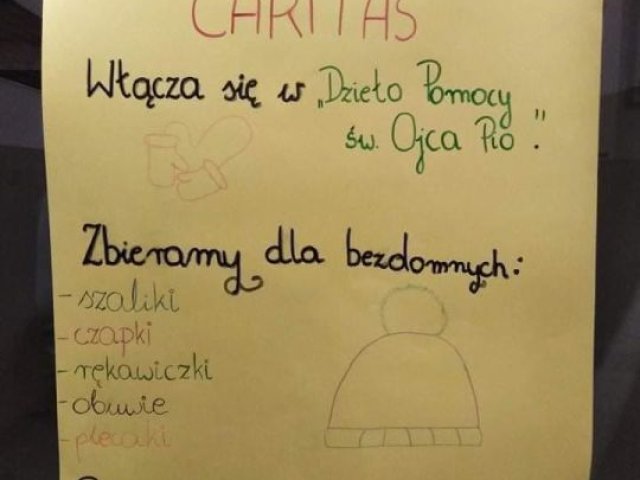 CARITAS
Włącza się w „Dzieło Pomocy
św. Ojca Pio".
Zbieramy dla bezdomnych:
- szaliki
- czapki
- rękawiczki
- obuwie
- plecaki